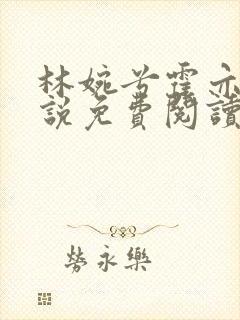 林婉兮霍亦
說免費閱讀
勞永樂